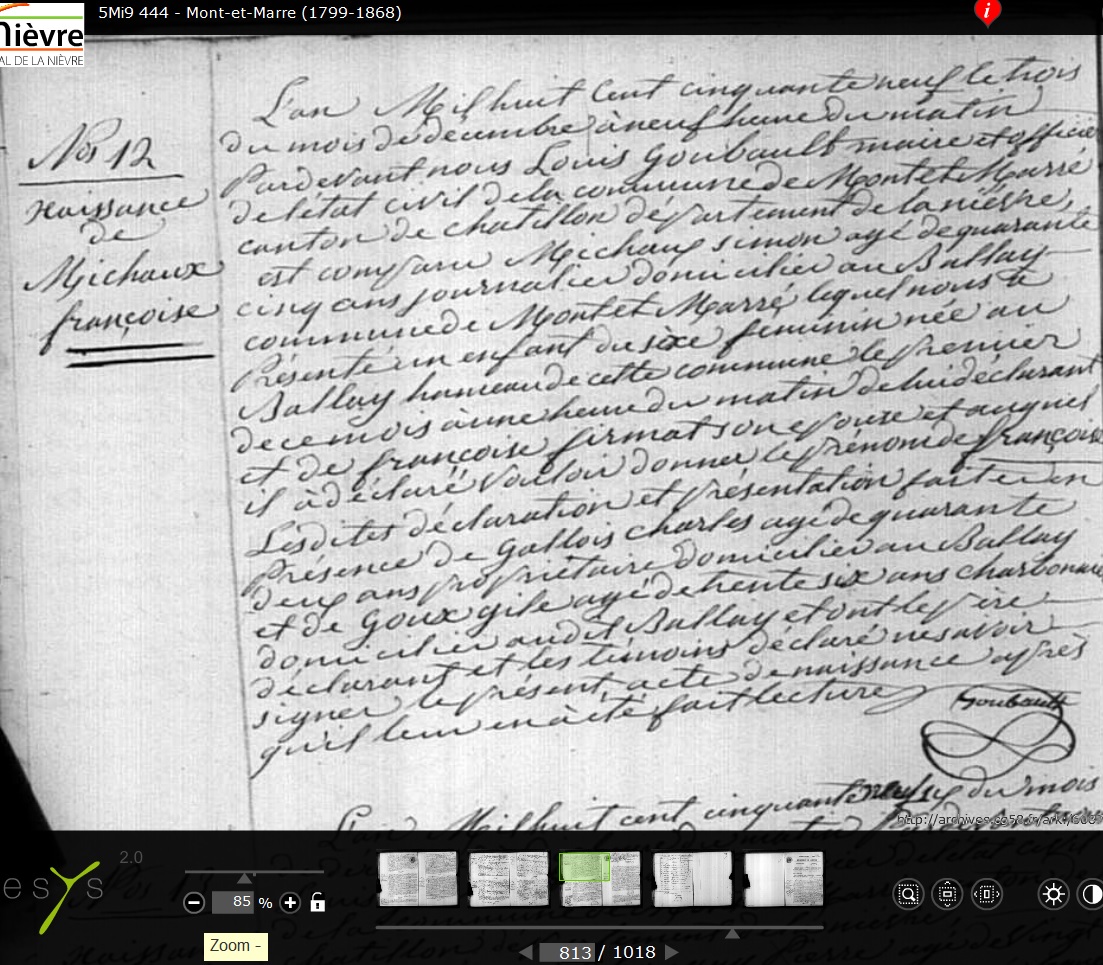 5Mi9 444 - Mont-et-Marre (1799-1868)
i
ièvre
AL DE LA NIÈVRE
Nos 12
Naissance
de
Michaux
françoise
L'an Mil huit Cent cinquante neuf le trois
du mois de décembre à neuf heure du matin
Pardevant nous Louis Goubault maire et officier
de létat civil de la commune de Mont et Marré
canton de chatillon département de la nièvre,
est comparu Michaux simon agé de quarante
cinq ans journalier domicilier au Ballay
commune de Mont et Marré, lequel nous à
Présenté un enfant du sèxe féminin née au
Ballay hameau de cette commune le premier
de ce mois à une heure du matin de lui déclarant
et de françoise firmat son epouse et auquel
il à déclaré valloir donner le prénom de françoise
Lesdites déclaration et présentation faite en
Présence de Gallois charles agé de quarante
deux ans propriétaire domicilier au Ballay
et de Goux gile agé de trente six ans charbonnier
domicilier audit Ballay et ont le père
déclarant et les témoins déclaré ne savoir
signer le présent, acte de naissance après
qu'il leur en à été fait lecture
Goubault
Mil huit cent cinquante neuf du mois
http://archives.cg58.fr/ark:/
esys
2.0
85 %
Zoom -
813 / 1018